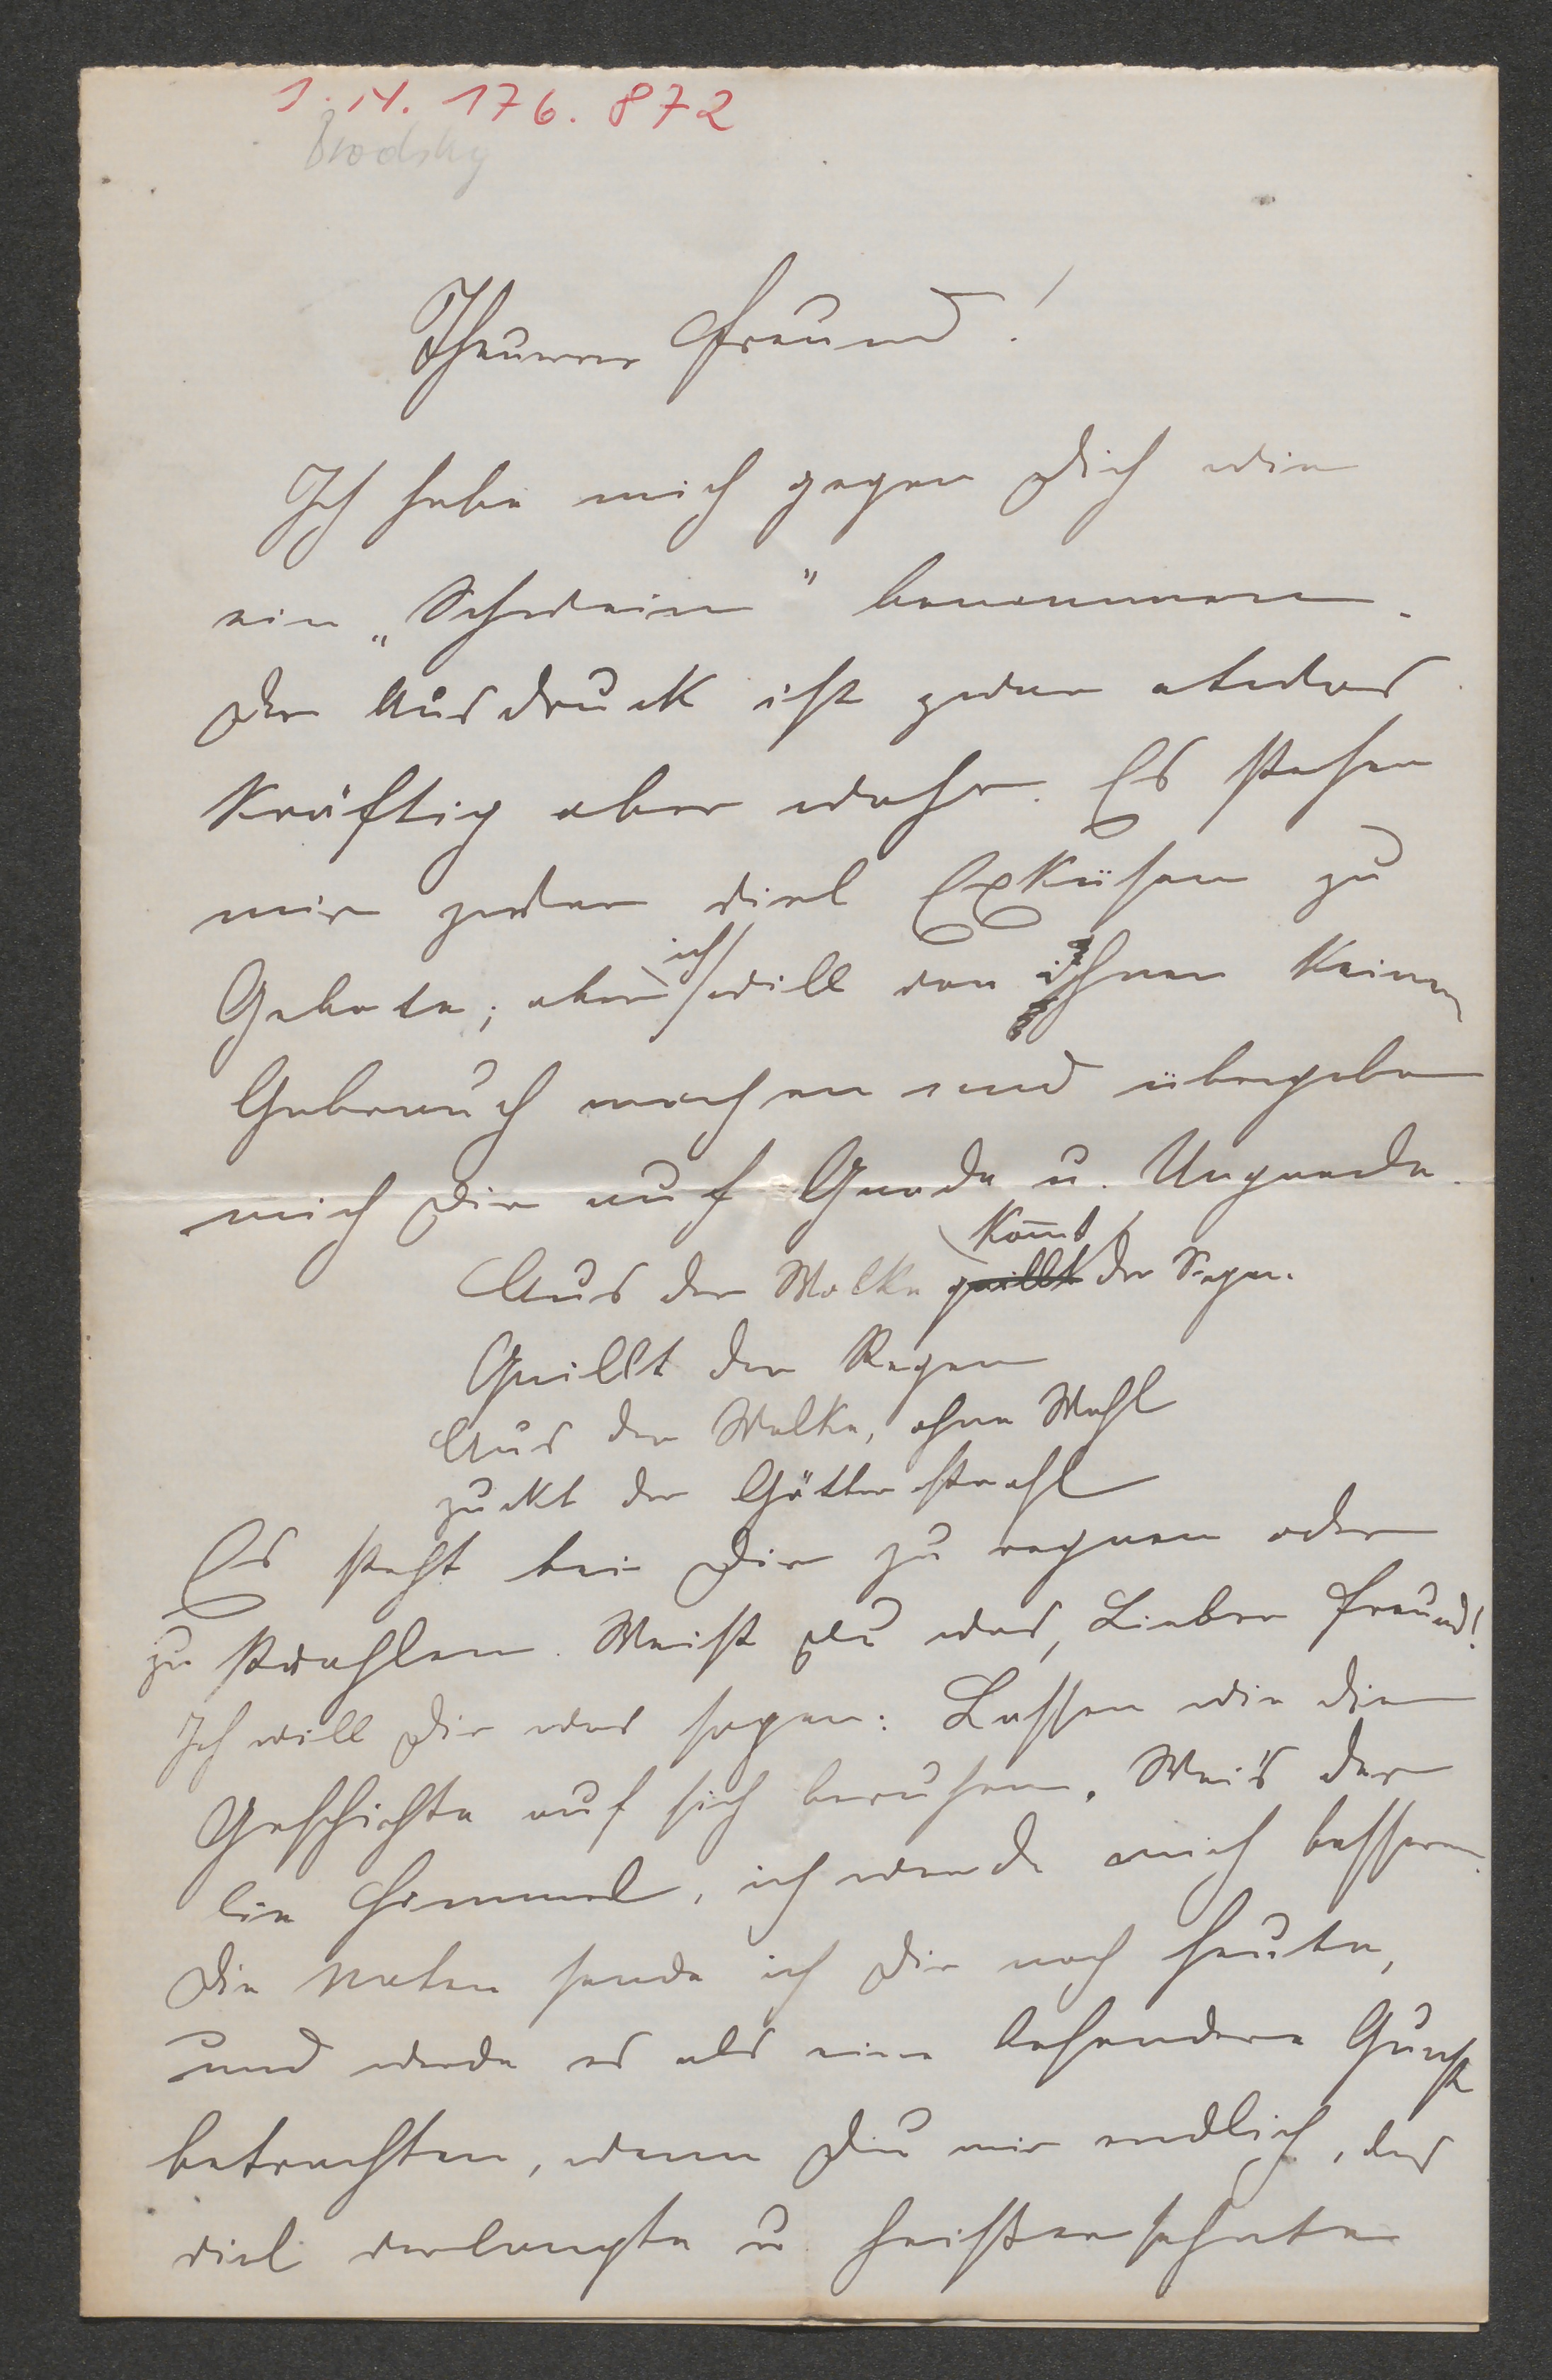 I. N. 176.872
Brodsky
Theurer Freund!
Ich habe mich gegen Dich wie
ein „Schwein" benommen.
Der Ausdruck ist zwar etwas
kräftig aber wahr. Es stehen
mir zwar viel Exküsen zu
Gebote; aber ich will von ihnen keinen
Gebrauch machen und übergebe
mich Dir auf Gnade u. Ungnade.
Aus der Wolke quillt kom̄t der Segen.
Quillt der Regen
Aus der Wolke, ohne Wahl
zuckt der Götterstrahl
Es steht bei Dir zu regnen oder
zu strahlen. Weißt Du was, Lieber Freund!
Ich will Dir was sagen: Lassen wir die
Geschichte auf sich beruhen. Weis der
lie Himmel, ich werde mich bessern.
Die Noten sende ich Dir noch heute,
und werde es als eine besondere Gunst
betrachten, wenn Du mir endlich, das
viel verlangte u. heißersehnte